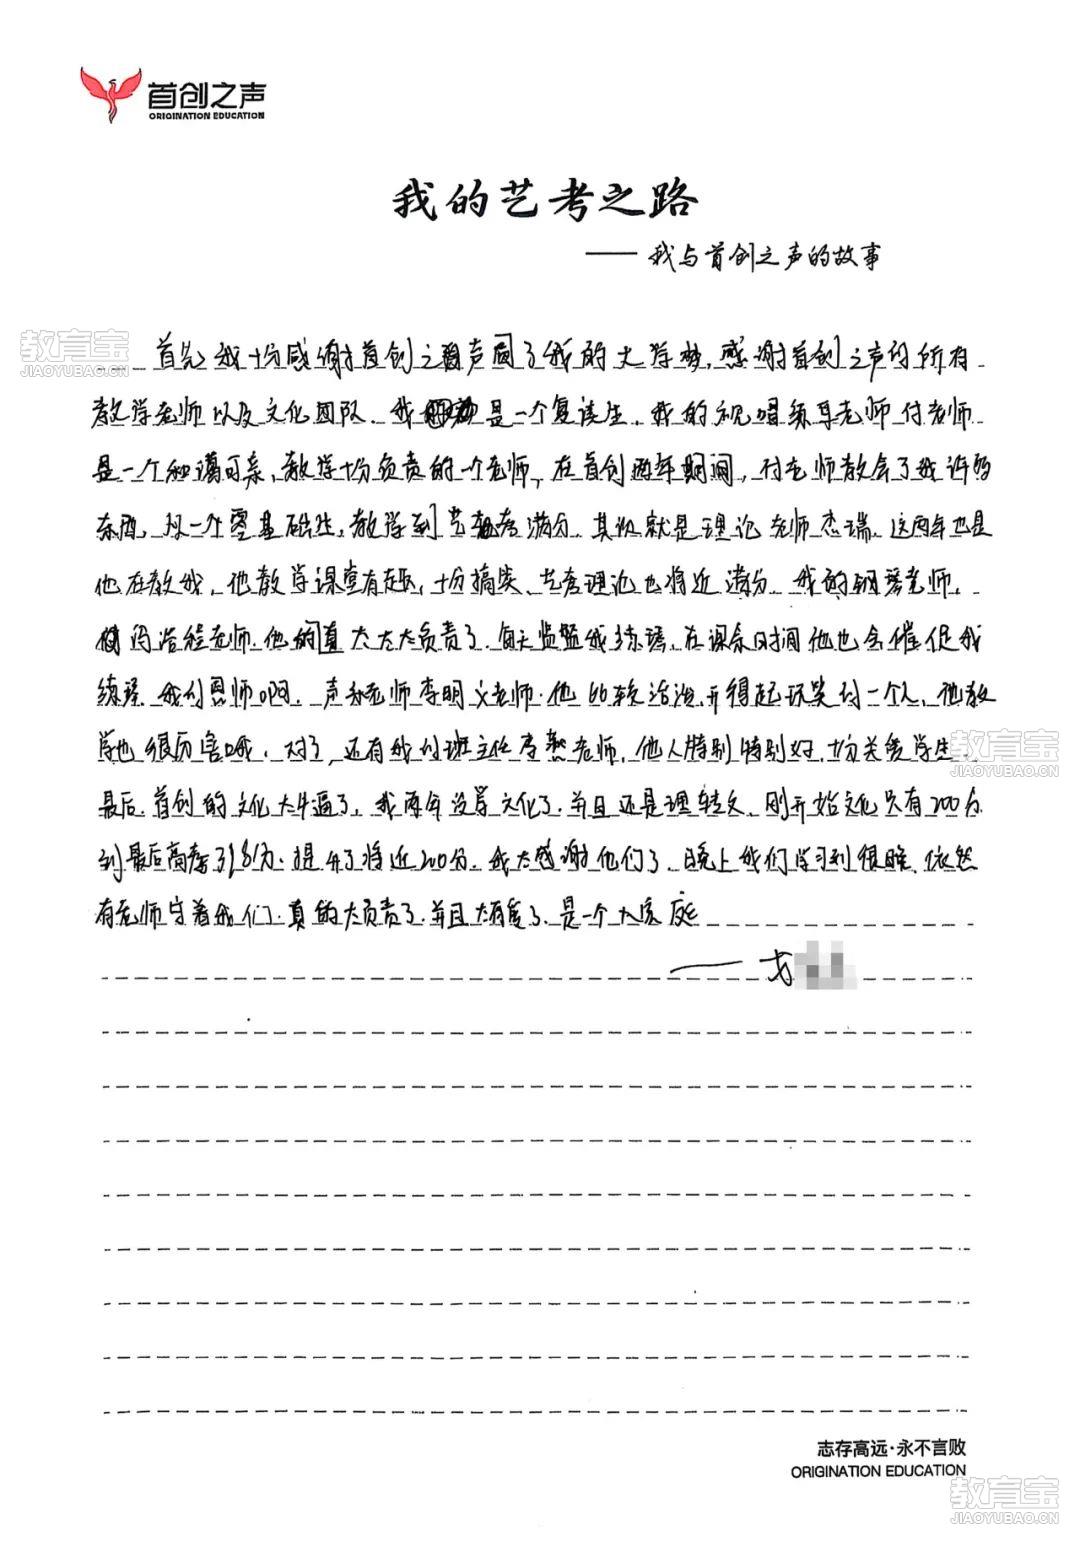 首创之声
ORIGINATION EDUCATION
我的艺考之路
——我与首创之声的故事
教育宝
JIAOYUBAO.CN
首先我十分感谢首创之声圆了我的大学梦,感谢首创之声的所有
教学老师以及文化团队.我是一个复读生.我的视唱练耳老师付老师
是一个和谒可亲,教学十分负责的一个老师,在首创两年期间,付老师教会了我许多
东西,从一个零基础生,教学到艺考满分.其次就是理论老师杰瑞.这两年也是
他在教我,他教学课堂有趣,十分搞笑.艺考理论也将近满分.我的钢琴老师,
冯浩程老师.他真太太太负责了.每天监督我练琴.在课余时间他也会催促我
练琴.我的恩师啊.声乐老师李明义老师.他比较活泼,开得起玩笑的一个人,他教
学也很厉害哦.对了,还有我的班主任老师.他人特别特别好.十分关爱学生
教育宝
JIAOYUBAO.CN
最后.首创的文化太牛逼了.我两年没学文化了.并且还是理转文.刚开始文化只有200分
到最后高考381分.提升了将近200分.我太感谢他们了.晚上我们学习到很晚.依然
有老师守着我们.真的太负责了.并且太有爱了.是一个大家庭
志存高远·永不言败
ORIGINATION EDUCATION
教育宝
JIAOYUBAO.CN